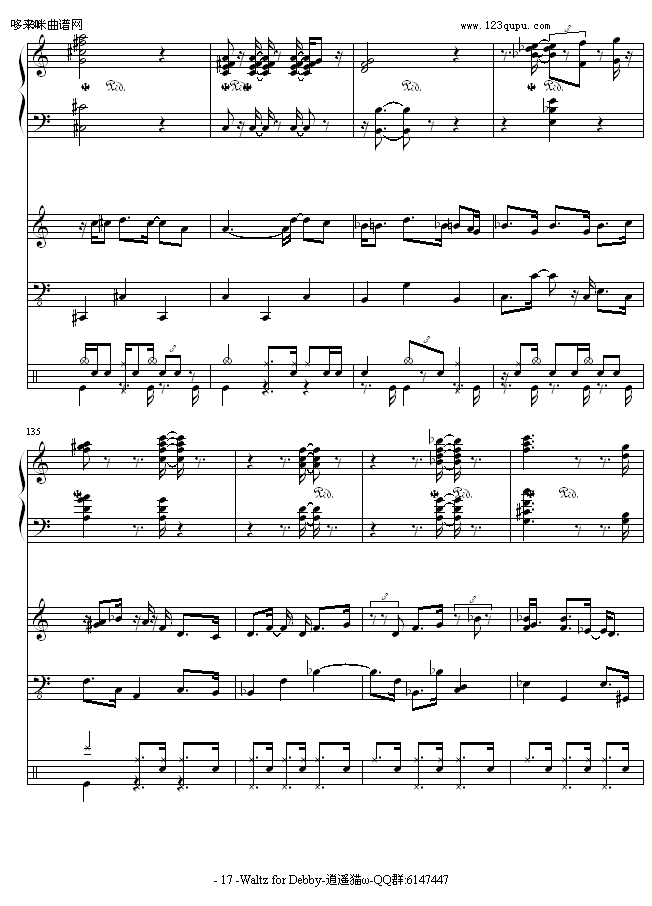 哆来咪曲谱网
www.123qupu.com
135
- 17 -Waltz for Debby-逍遥猫ω-QQ群:6147447